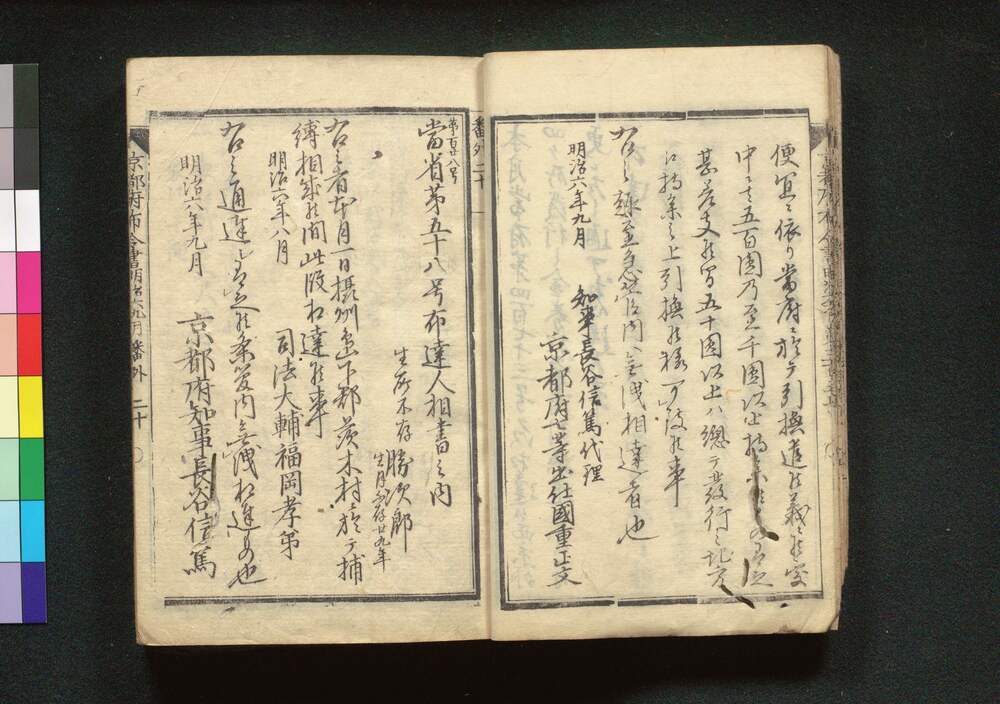 便冝ニ依リ当府ニ於テ引換遣候義ニ候処
中ニ者五百圓乃至千圓以上持
甚差支候間五十圓以上ハ総テ発行之地方
江持参之上引換候様可致候事
右之趣至急管内ヘ無洩相達者也
明治六年九月
知事長谷信篤代理
京都府七等出仕國重正文
番外二十
第百廿八号
當省第五十八号布達人相書之内
生所不存
勝次郎
生月不存廿九年
右之者本月一日摂州島下郡茨木村ニ於テ捕
縛相成候間此段相達候事
明治六年八月
司法大輔福岡孝弟
右之通達有之候条管内無洩相達もの也
明治六年九月
京都府知事長谷信篤
京都府布令書明治六年九月番外
二十